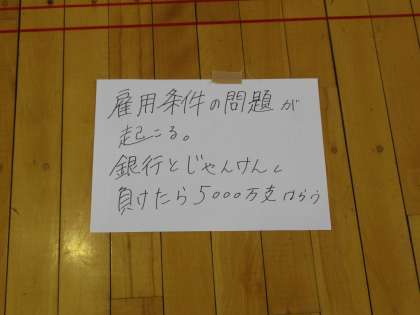 雇用条件の問題が
起こる。
銀行とじゃんけんし
負けたら5000万支はらう